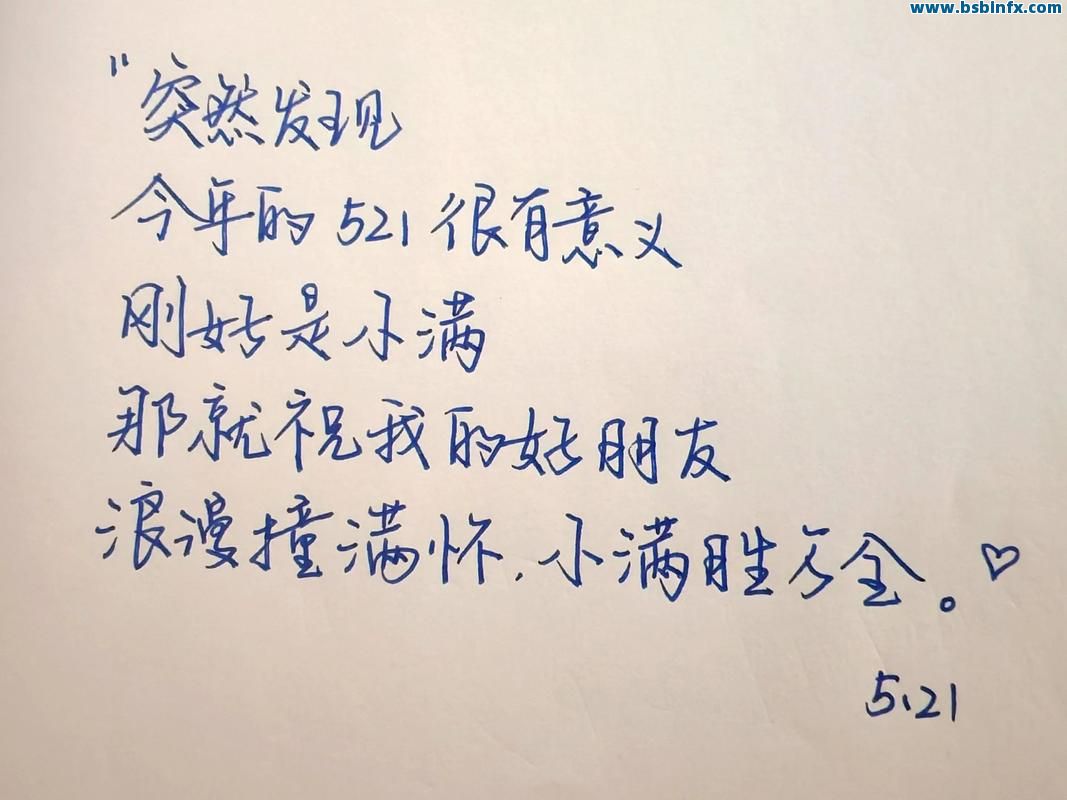 www.bsbinfx.com
"突然发现
今年的521很有意义
刚好是小满
那就祝我的好朋友
浪漫撞满怀.小满胜万全。♡
5.21